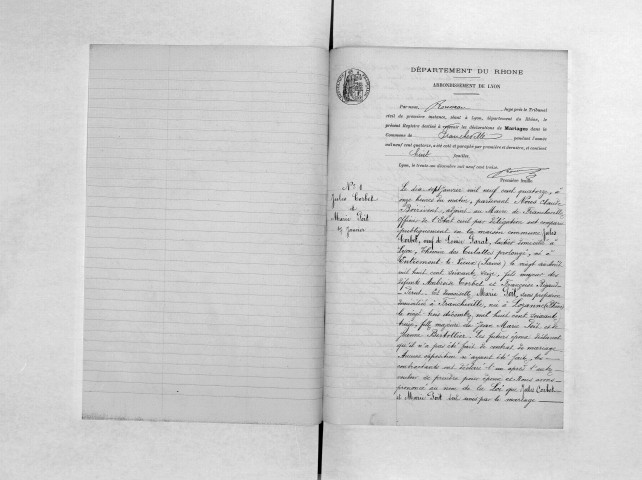 DÉPARTEMENT DU RHONE
ARRONDISSEMENT DE LYON
Par nous, Juge près le Tribunal
civil de première instance, séant à Lyon, département du Rhône, le
présent Registre destiné à recevoir les déclarations de Mariages dans la
Commune de Francheville pendant l'année
mil neuf cent quatorze, a été coté et paraphé par première et dernière, et contient
huit feuilles.
Lyon, le trente un décembre mil neuf cent treize.
Première feuille.
N° 1
Jules Corbet
et
Marie Poit
17 Janvier
Le dix sept janvier mil neuf cent quatorze, à
onze heures du matin, pardevant Nous Claude
adjoint au Maire de Francheville
officier de l'Etat civil par délégation ont comparu
publiquement en la maison commune Jules
Corbet, veuf de Louise domicilié à
Lyon, Chemin des Culattes prolongé, né à
Entremont le Vieux (Savoie) le vingt
mil huit cent soixante seize, fils majeur des
défunts Ambroise Corbet et Françoise
Et demoiselle Marie Poit, sans profession
domiciliée à Francheville, née à Lozanne (Rhône)
le vingt trois décembre mil huit cent soixante
fille majeure de Jean Marie Poit et de
Jeanne Berthollier. Les futurs époux déclarent
qu'il n'a pas été fait de contrat de mariage.
Aucune opposition n'ayant été faite, les
contractants ont déclaré l'un après l'autre
vouloir se prendre pour époux et Nous avons
prononcé au nom de la Loi que Jules Corbet
et Marie Poit sont unis par le mariage